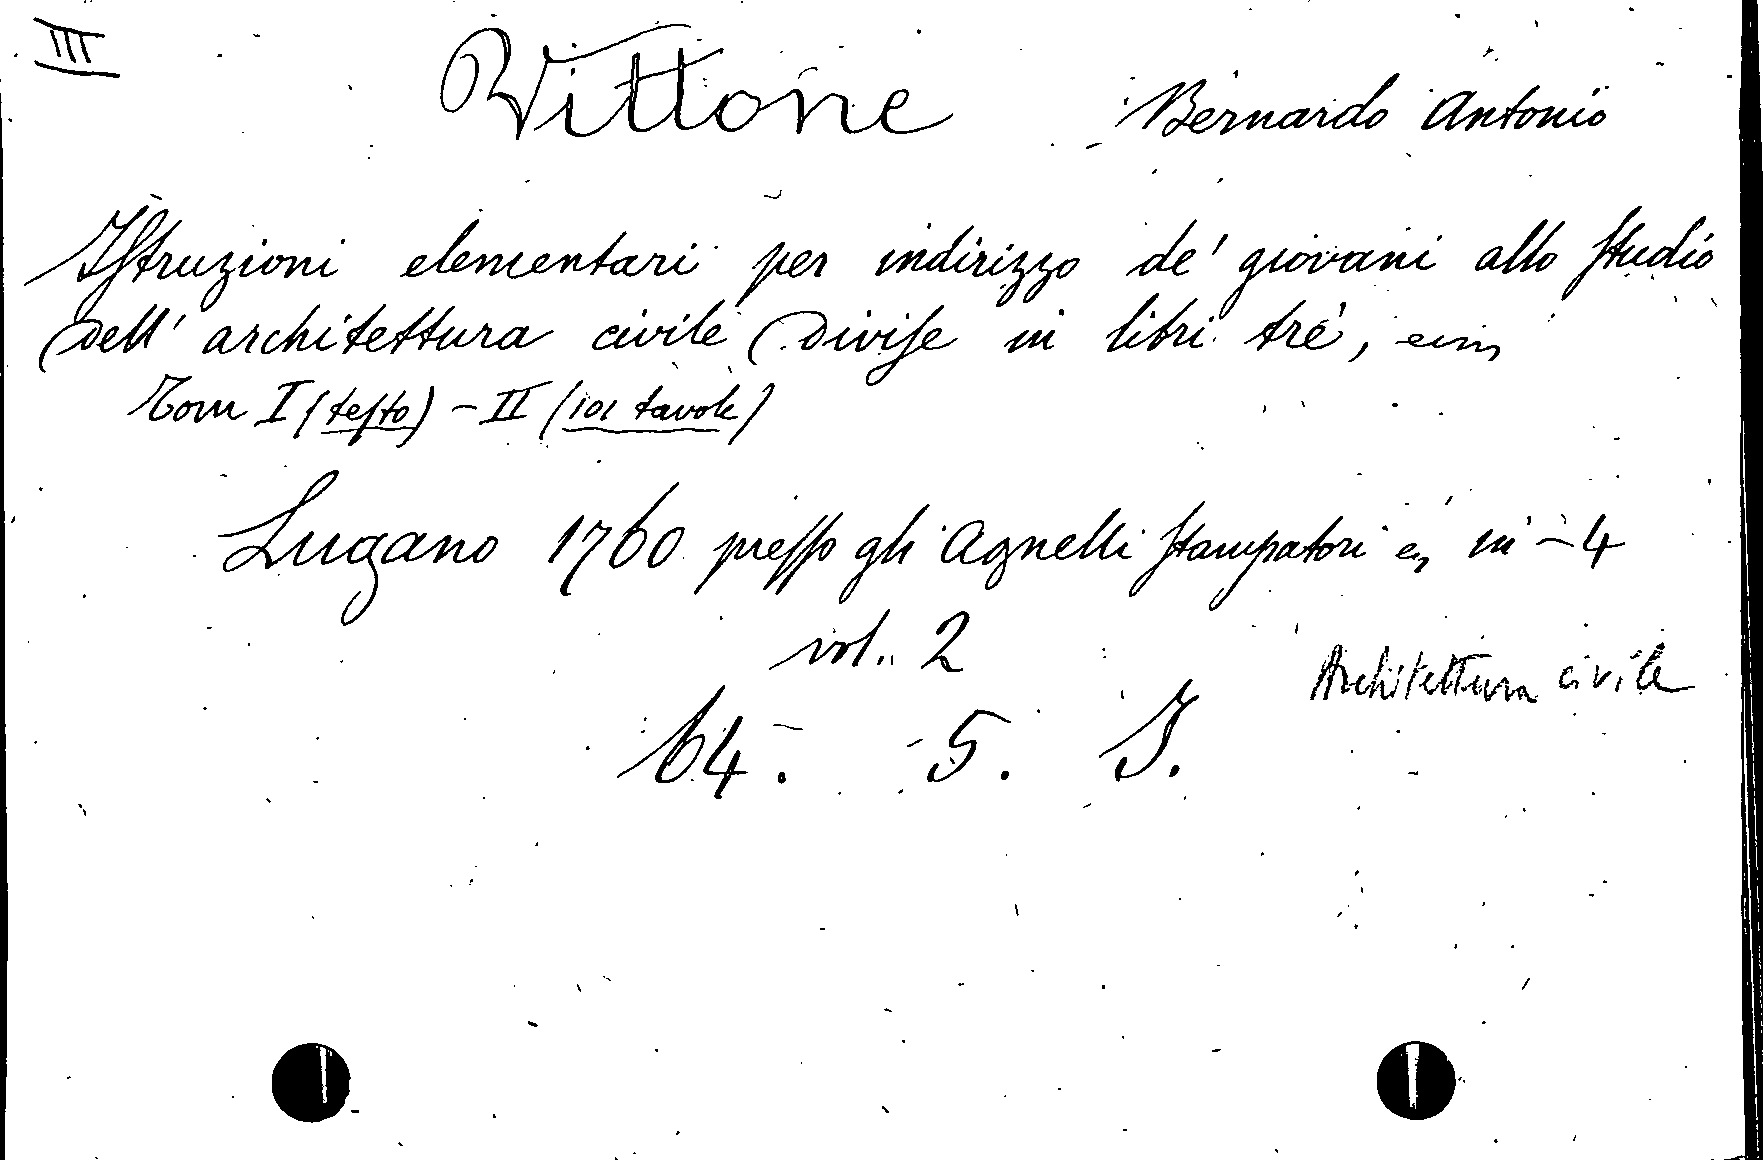 III
Vittone Bernardo Antonio
Istruzioni elementari per indirizzo de' giovani allo studio
dell' architettura civile Divise in libri tré,
Tom I (testo) - II (101 tavole)
Lugano 1760 presso gli Agnelli stampatori in-4
vol. 2
Architettura civile
64. 5. I.